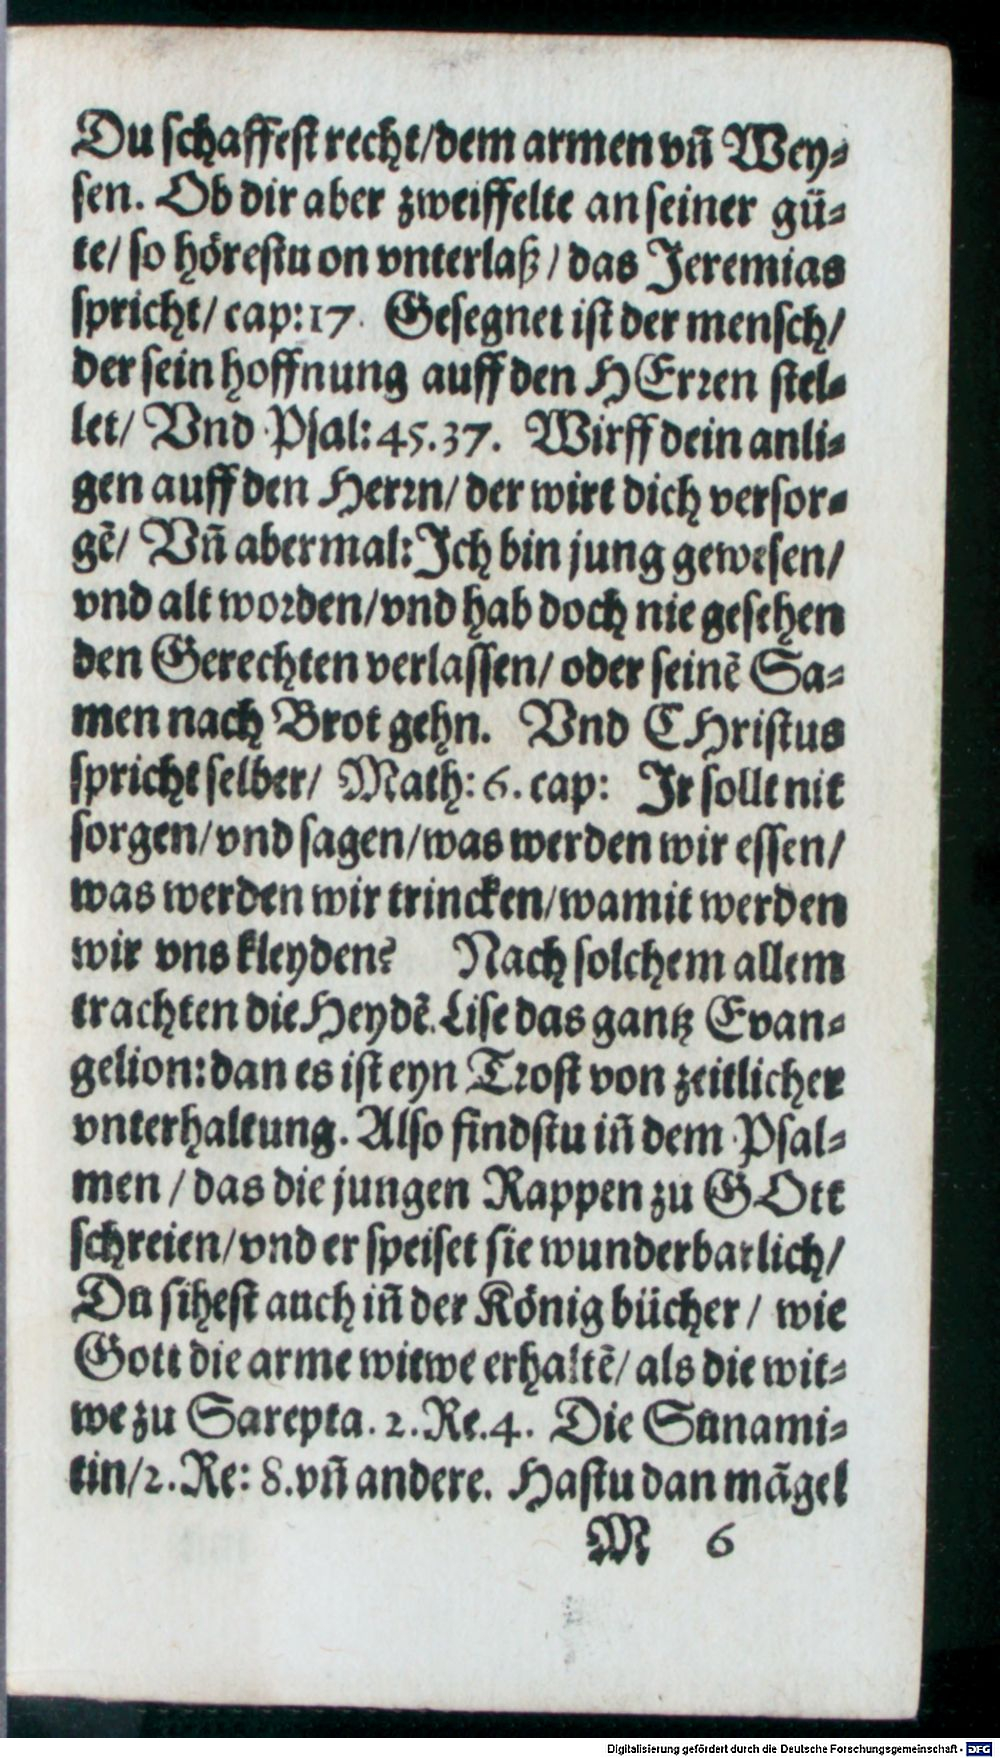 Du schaffest recht/dem armen vñ Wey-
sen. Ob dir aber zweiffelte an seiner gü-
te/ so hörestu on vnterlaß/ das Jeremias
spricht/ cap:17. Gesegnet ist der mensch/
der sein hoffnung auff den HErren stel-
let/ Vnd Psal: 45.37. Wirff dein anli-
gen auff den Herrn/ der wirt dich versor-
gẽ/ Vñ abermal: Ich bin jung gewesen/
vnd alt worden/vnd hab doch nie gesehen
den Gerechten verlassen/ oder seinẽ Sa-
men nach Brot gehn. Vnd CHristus
spricht selber/ Math: 6. cap: Ir sollt nit
sorgen/vnd sagen/was werden wir essen/
was werden wir trincken/wamit werden
wir vns kleyden? Nach solchem allem
trachten die Heydẽ. Lise das gantz Evan-
gelion: dan es ist eyn Trost von zeitlicher
vnterhaltung. Also findstu iñ dem Psal-
men / das die jungen Rappen zu GOtt
schreien/vnd er speiset sie wunderbarlich/
Du sihest auch iñ der König bücher/ wie
Gott die arme witwe erhaltẽ/ als die wit-
we zu Sarepta. 2. Re.4. Die Sunami-
tin/2. Re: 8. vñ andere. Hastu dan mãgel
M 6
Digitalisierung gefördert durch die Deutsche Forschungsgemeinschaft - DFG